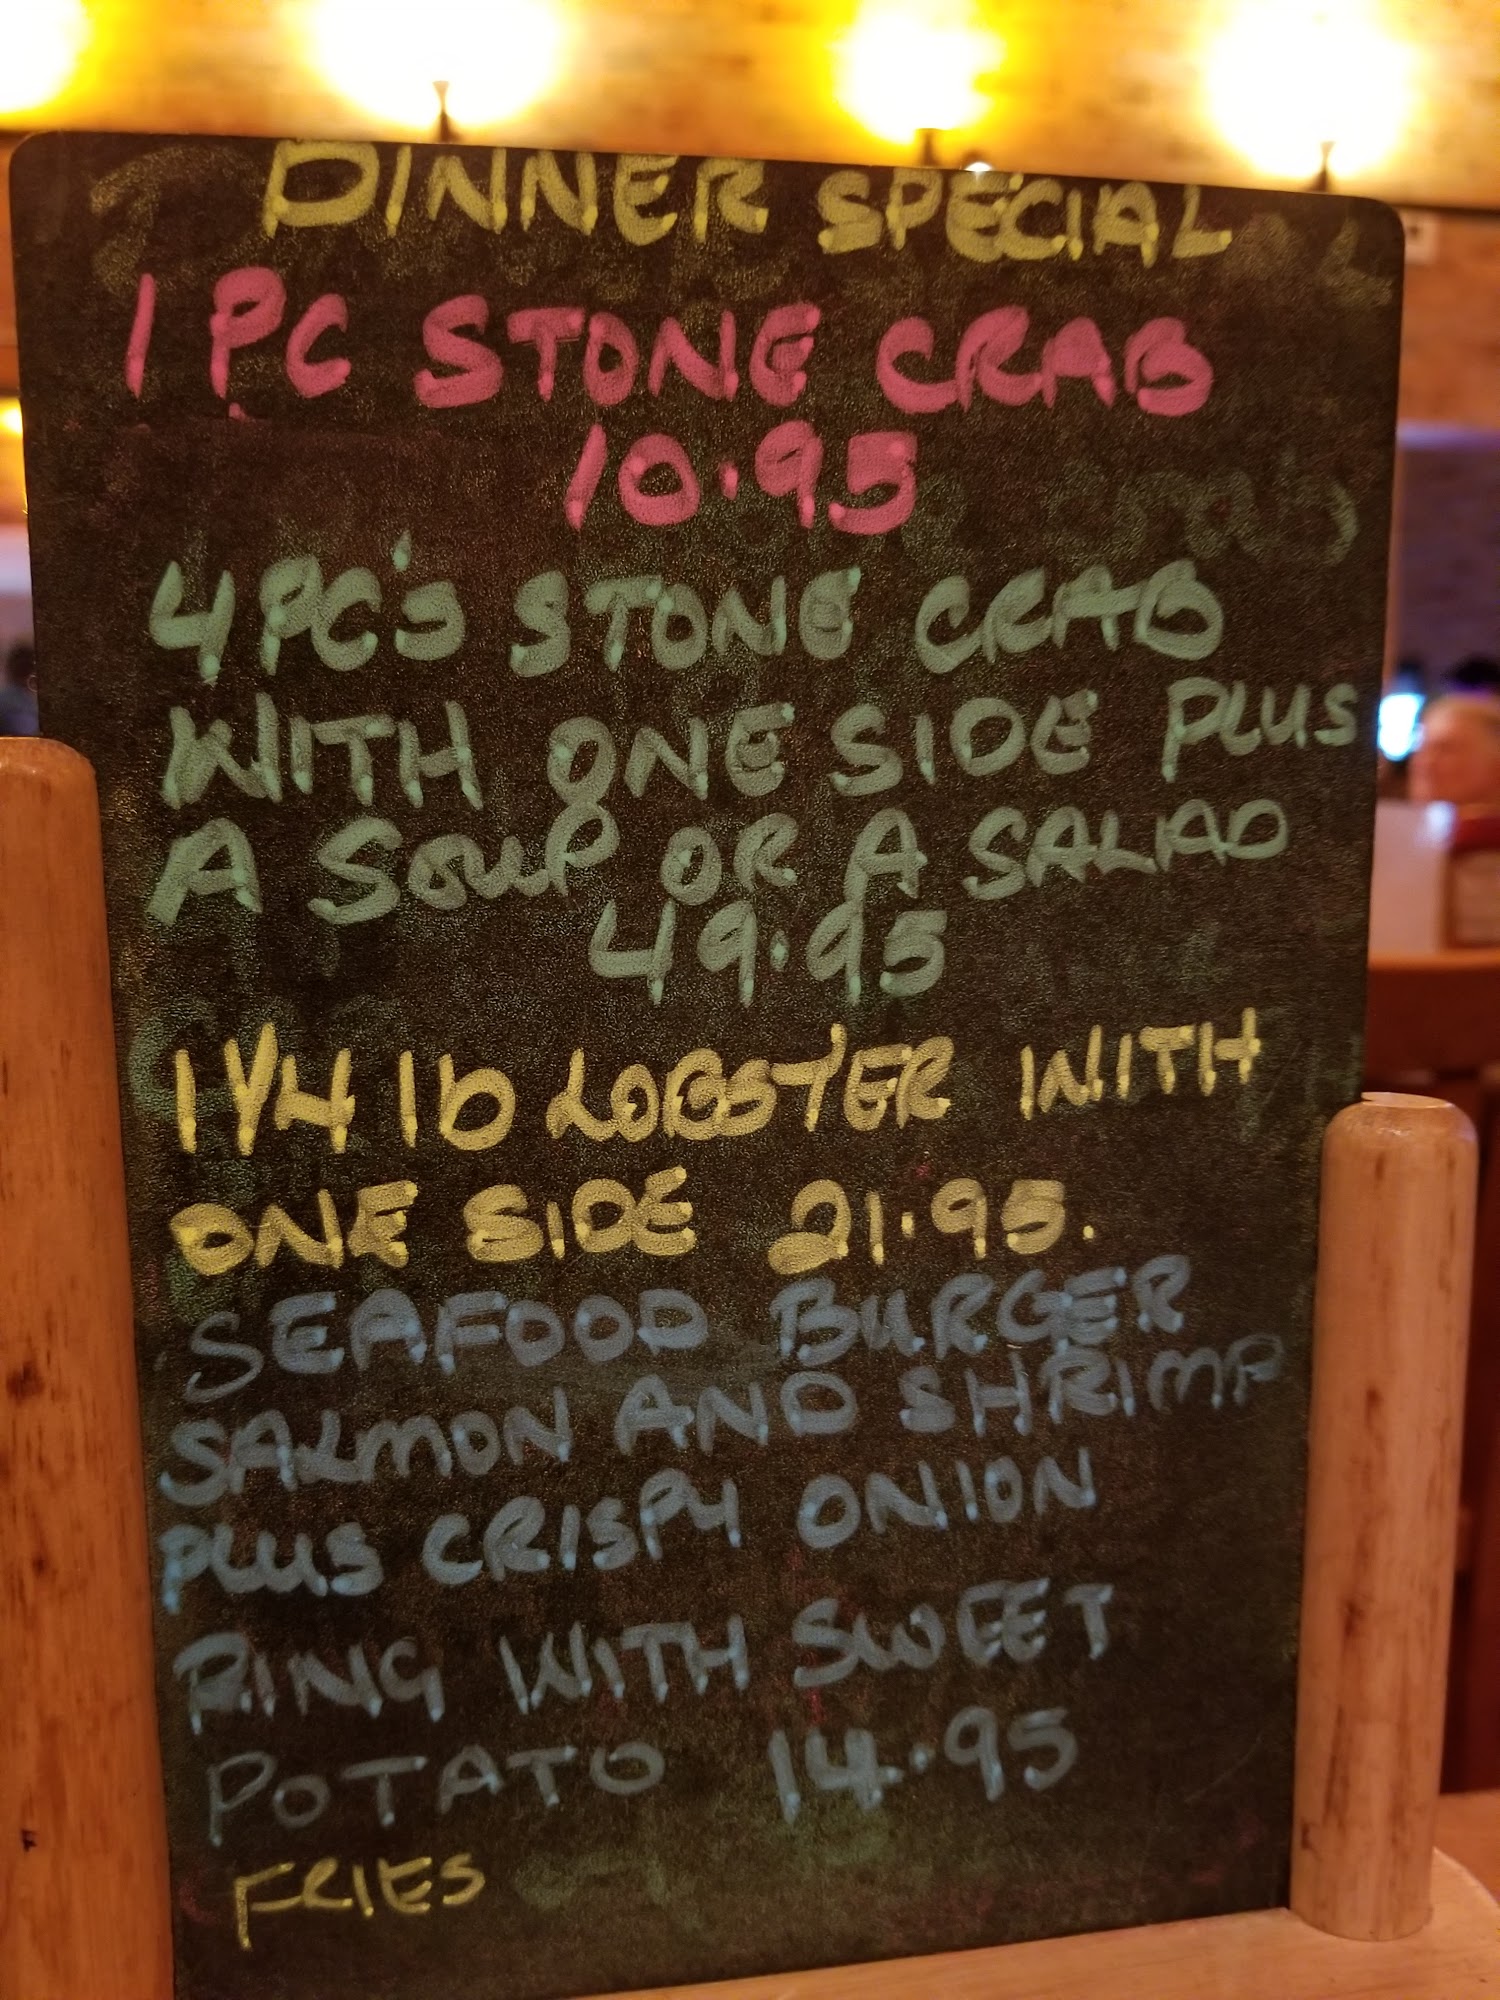 DINNER SPECIAL
1 PC STONE CRAB
10.95
4 PC's STONE CRAB
WITH ONE SIDE PLUS
A SOUP OR A SALAD
49.95
1 1/4 lb LOBSTER WITH
ONE SIDE 21.95.
SEAFOOD BURGER
SALMON AND SHRIMP
PLUS CRISPY ONION
RING WITH SWEET
POTATO 14.95
FRIES